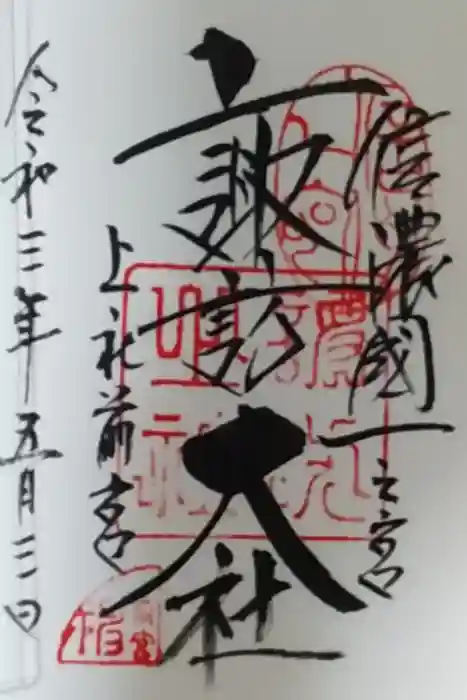 信濃國一之宮
諏訪大社
上社前宮
令和三年五月三日